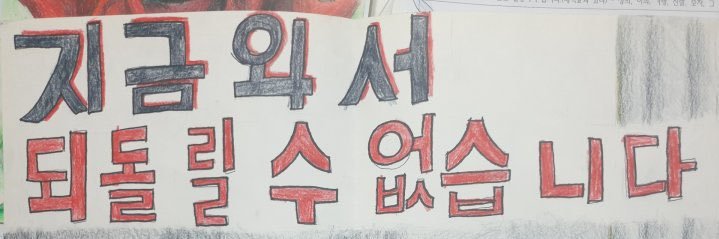 지금와서
되돌릴 수 없습니다